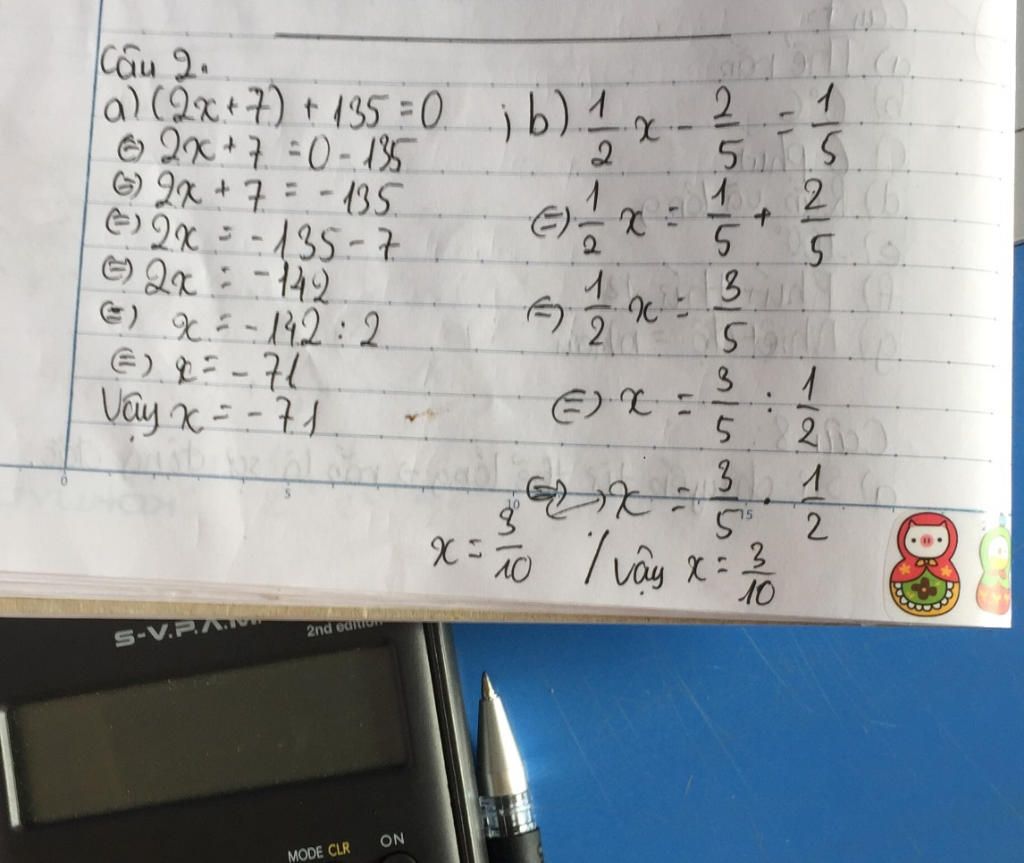 Câu 2.
a) (2x+7) + 135 = 0
⇔ 2x+7 = 0 - 135
⇔ 2x + 7 = -135
⇔ 2x = -135 - 7
⇔ 2x = -142
⇔ x = -142 : 2
⇔ x = -71
Vậy x = -71
; b) 1/2 x - 2/5 = 1/5
⇔ 1/2 x = 1/5 + 2/5
⇔ 1/2 x = 3/5
⇔ x = 3/5 : 1/2
⇔ x = 3/5 . 1/2
x = 3/10 / Vậy x = 3/10
0 5 10 15
S-V.P.A.M.
2nd edition
MODE CLR ON